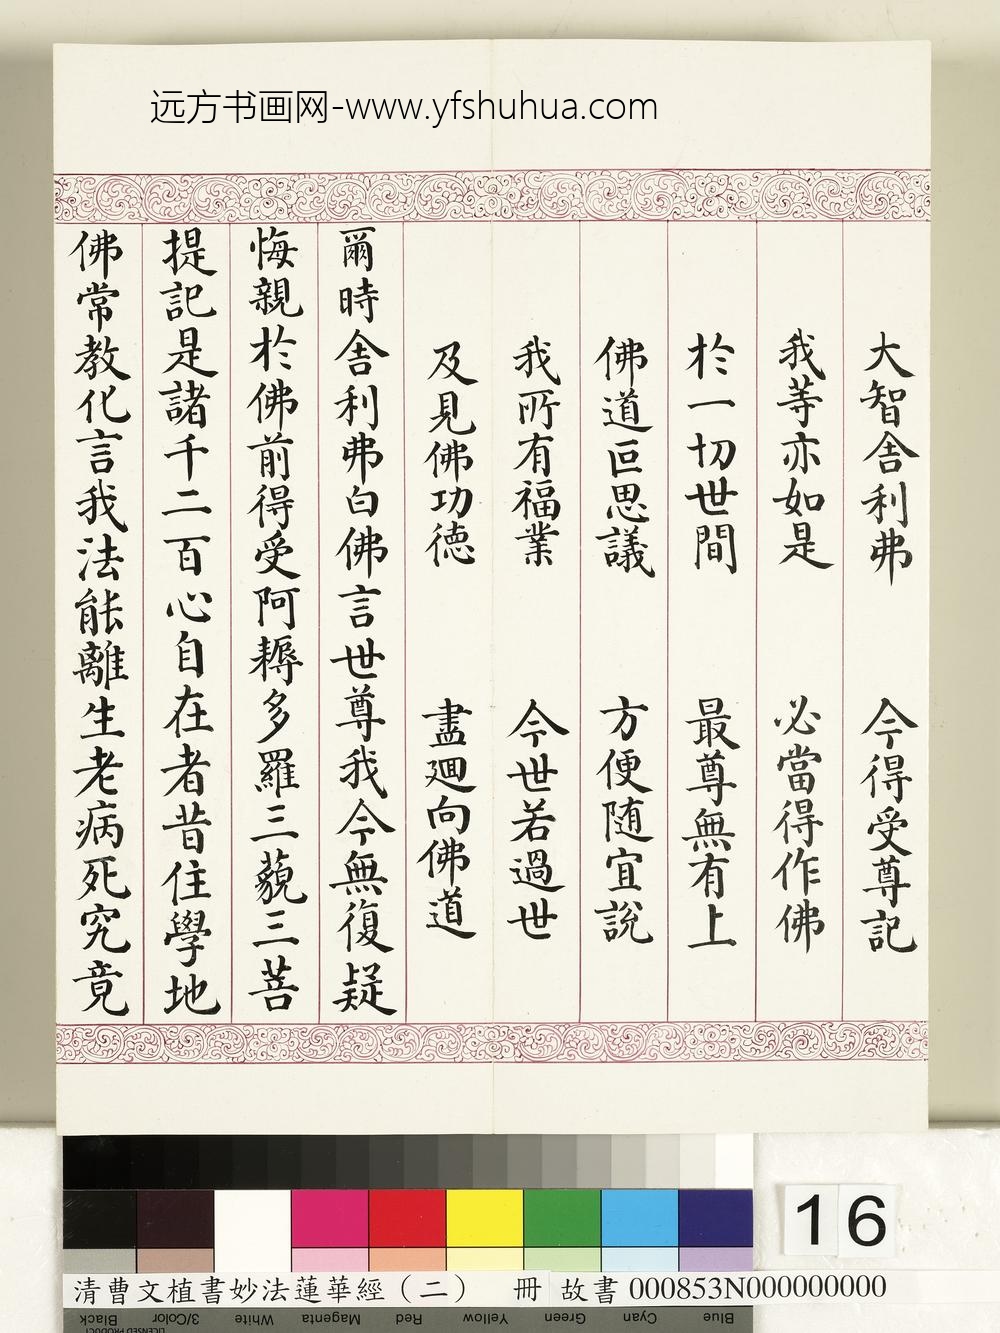 远方书画网-www.yfshuhua.com
大智舍利弗　今得受尊記
我等亦如是　必當得作佛
於一切世間　最尊無有上
佛道叵思議　方便随宜說
我所有福業　今世若過世
及見佛功徳　盡廻向佛道
爾時舍利弗白佛言世尊我今無復疑
悔親於佛前得受阿耨多羅三藐三菩
提記是諸千二百心自在者昔住學地
佛常教化言我法能離生老病死究竟
16
清曹文植書妙法蓮華經（二）　冊 故書 000853N000000000
Black 3/Color White Magenta Red Yellow Green Cyan Blue
LICENSED PRODUCT